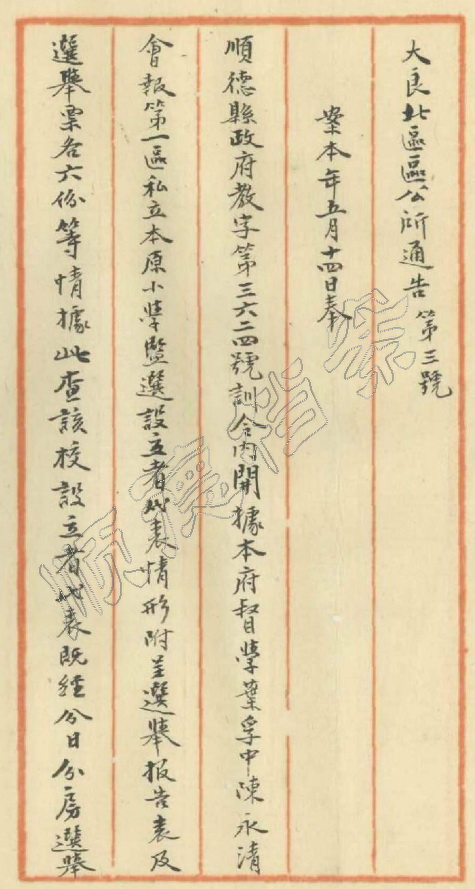 大良北區區公所通告 第三號
案本年五月十四日奉
順德縣政府教字第三六二四號訓令內開據本府督學葉孚中陳永清
會報第一區私立本原小學暨選設立者代表情形附呈選舉报告表及
選舉票各六份等情據此查該校設立者代表既經分日分房選舉
顺德档案